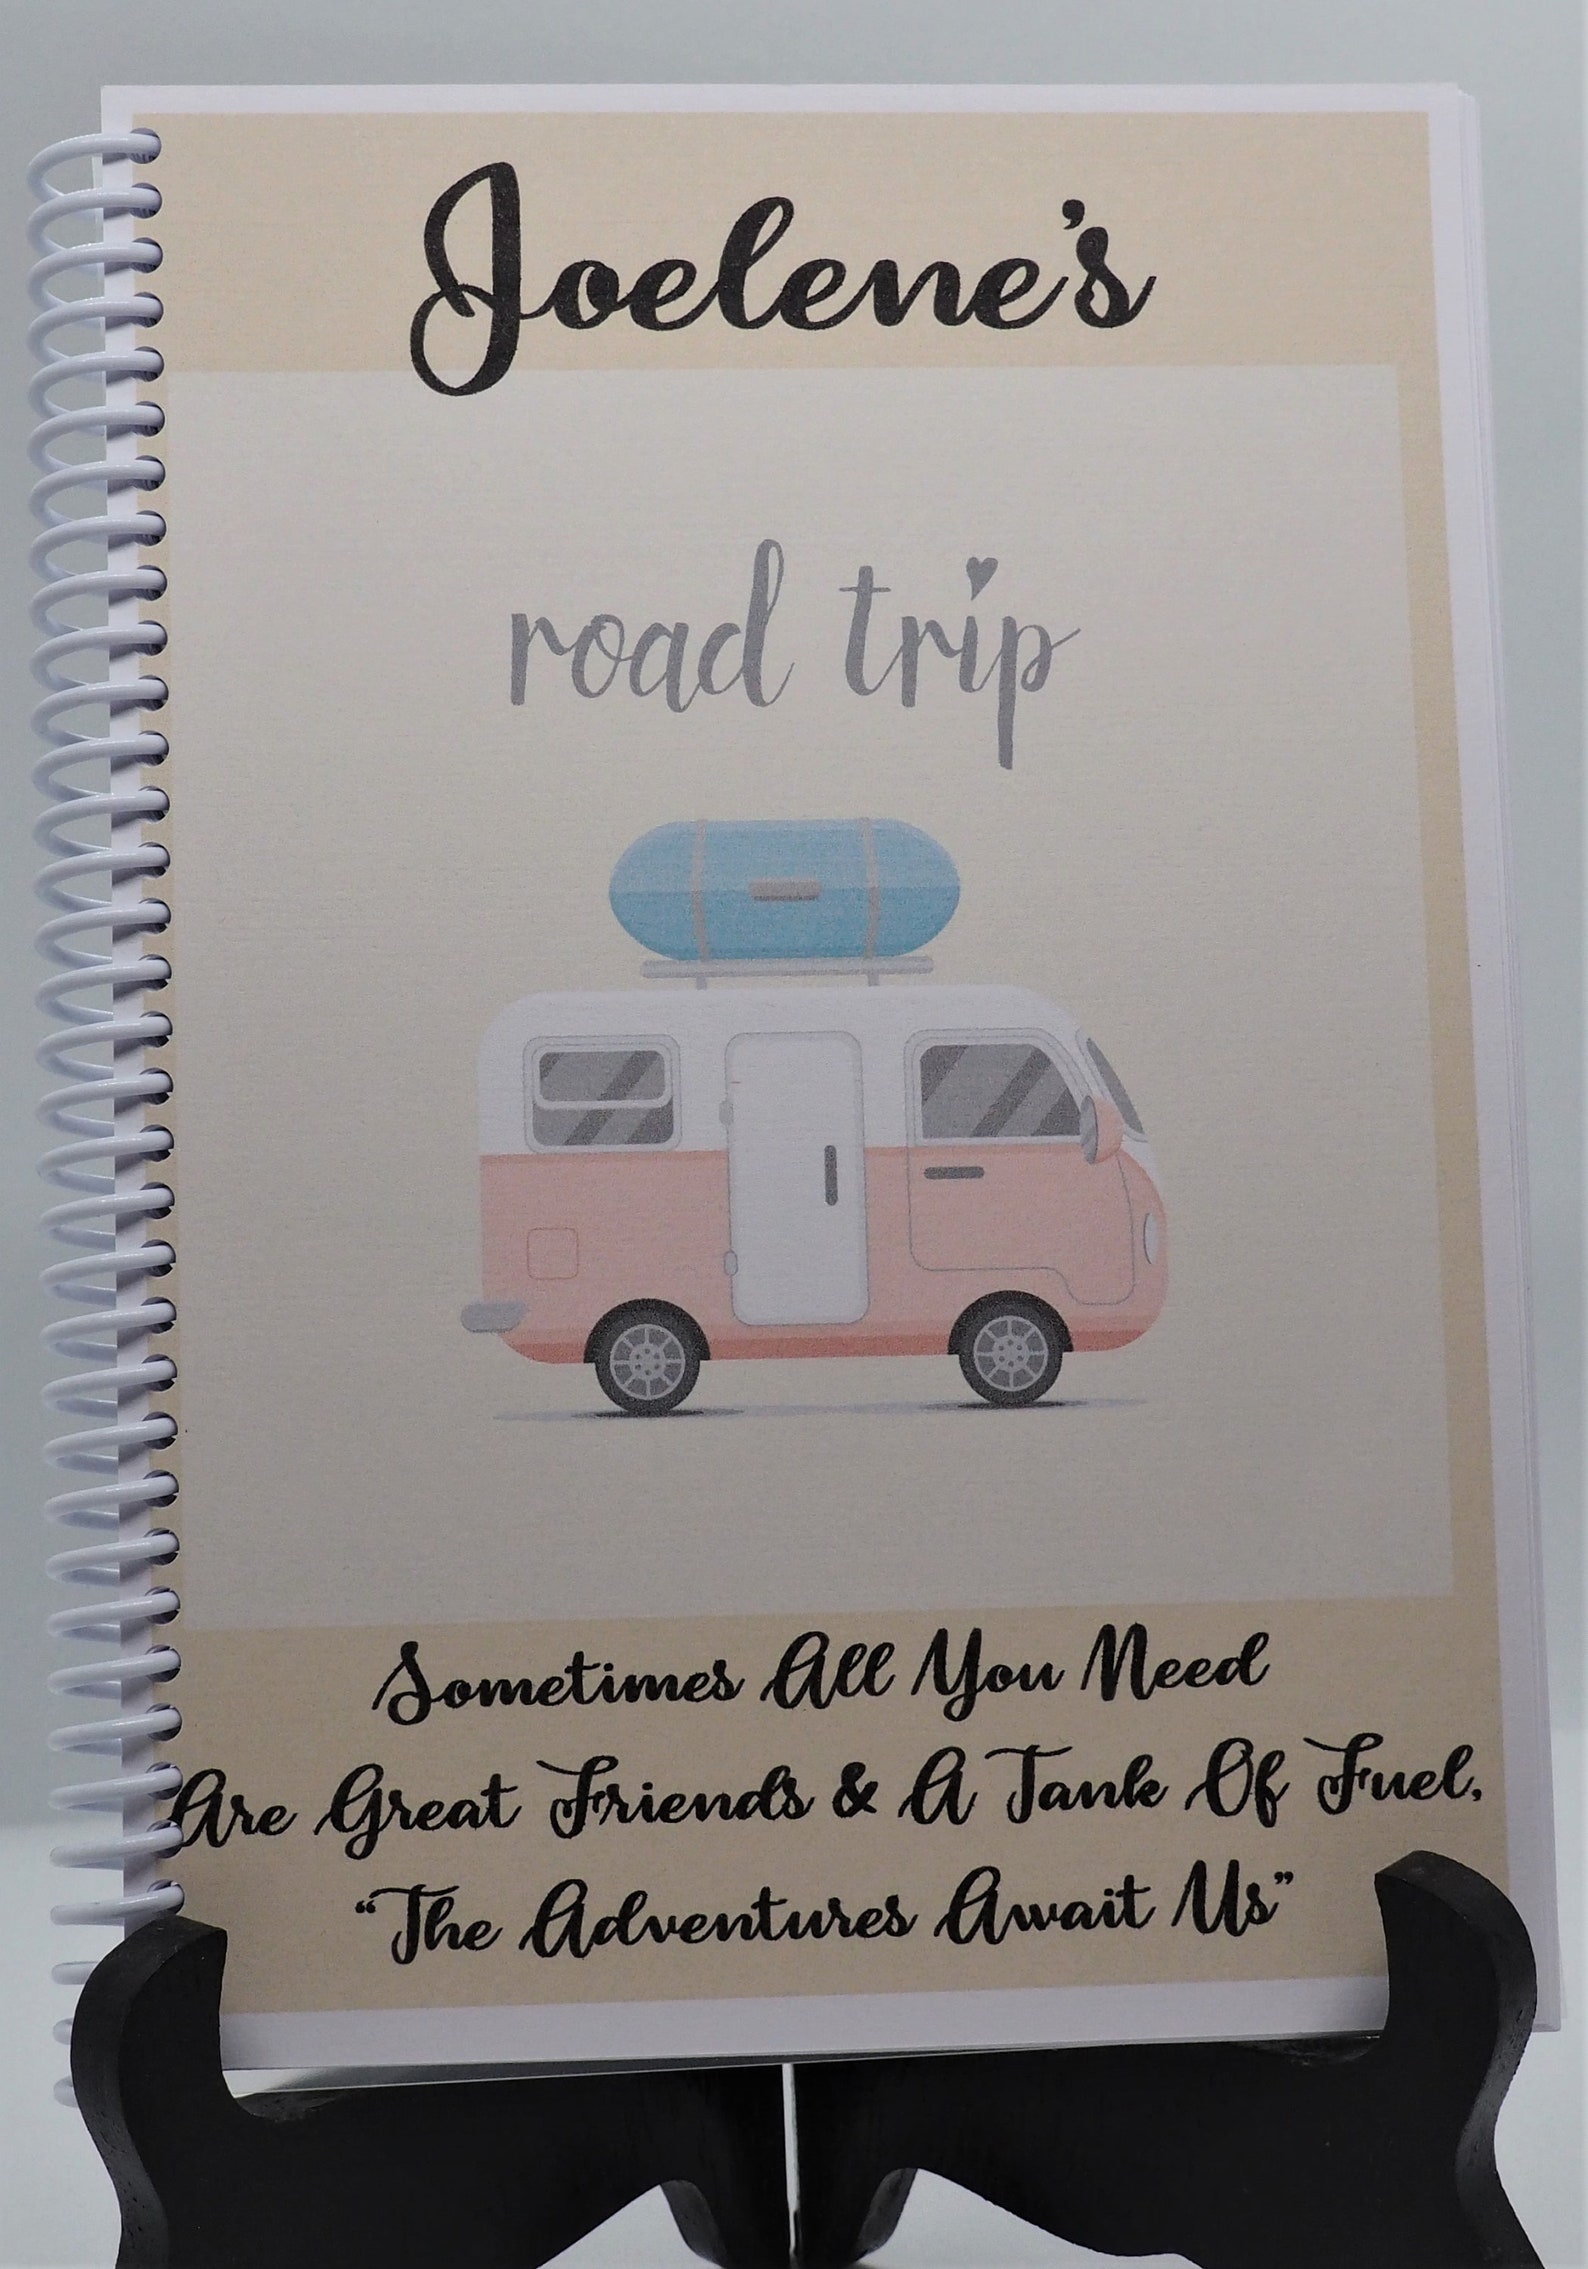 Joelene's
road trip
Sometimes All You Need
Are Great Friends & A Tank Of Fuel,
“The Adventures Await Us”